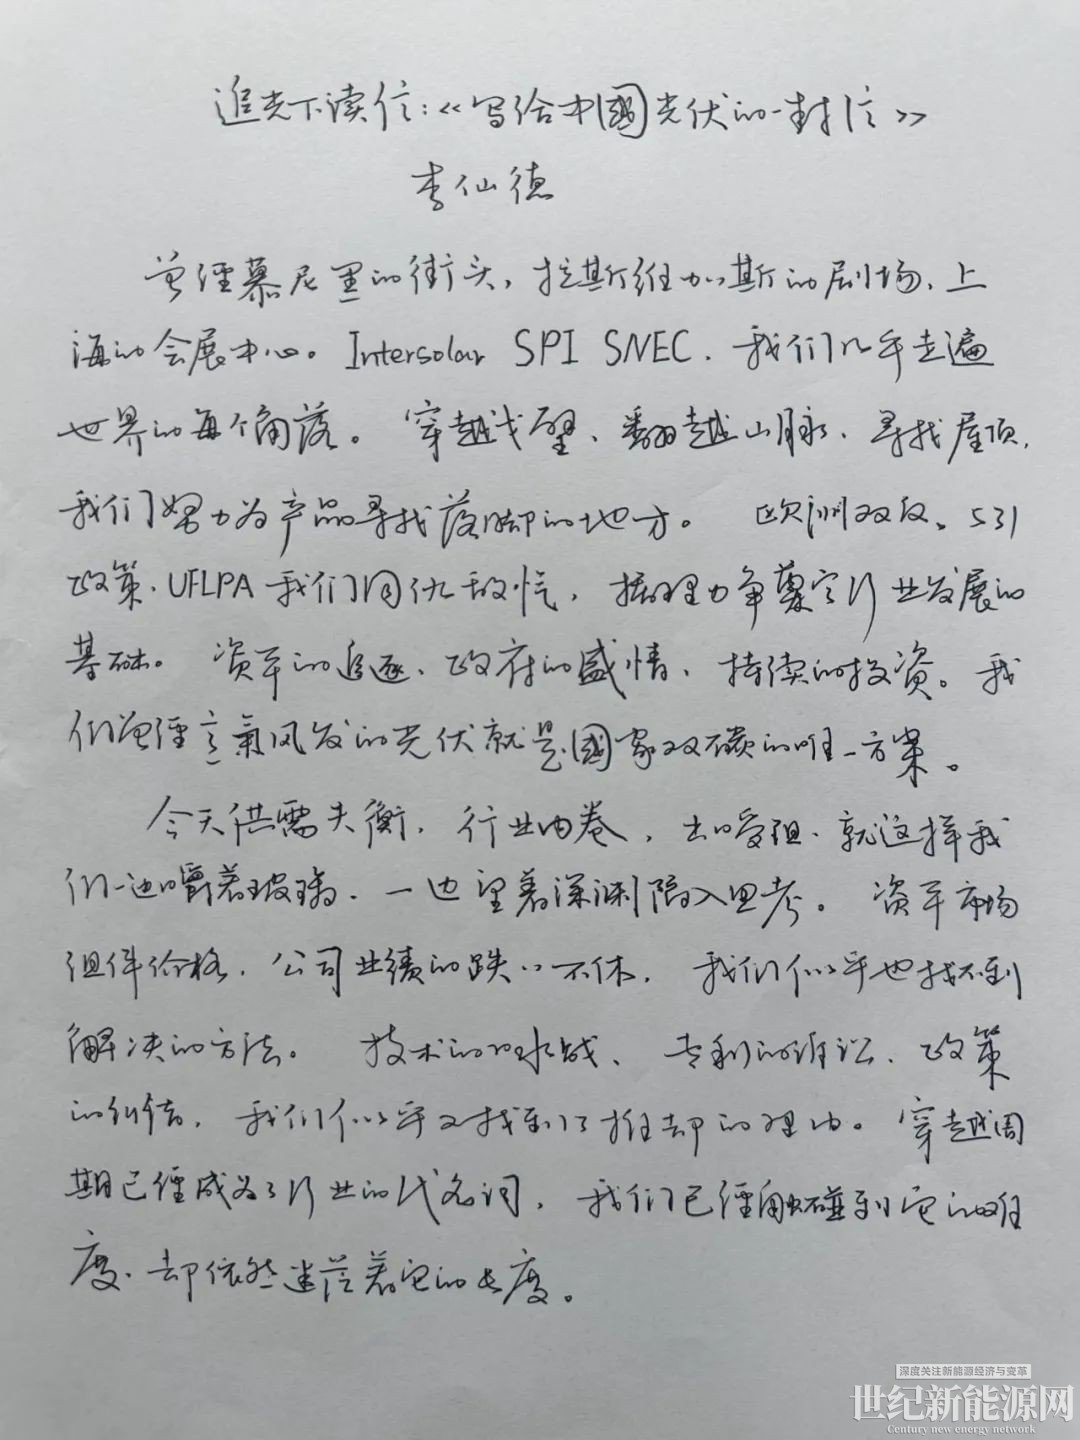 追光下读信:《写给中國光伏的一封信》
李仙德
曾经慕尼黑的街头,拉斯维加斯的剧场、上
海的会展中心。Intersolar SPI SNEC. 我们几乎走遍
世界的每个角落。穿越戈壁、翻越山脉、寻找屋顶,
我们努力为产品寻找落脚的地方。欧洲双反、531
政策、UFLPA 我们同仇敌忾,据理力争奠定行业发展的
基础。资本的追逐、政府的盛情、持续的投资。我
们曾经意氣风发的光伏就是國家双碳的唯一方案。
今天供需失衡,行业内卷,出口受阻、就这样我
们一边嚼着玻璃、一边望着深渊陷入思考。资本市场
组件价格、公司业绩的跌跌不休,我们似乎也找不到
解决的方法。技术的口水战、专利的诉讼、政策
的纠结,我们似乎又找到了推却的理由。穿越周
期已经成为了行业的代名词,我们已经触碰到它的难
度、却依然迷茫着它的长度。
深度关注新能源经济与变革
世纪新能源网
Century new energy network